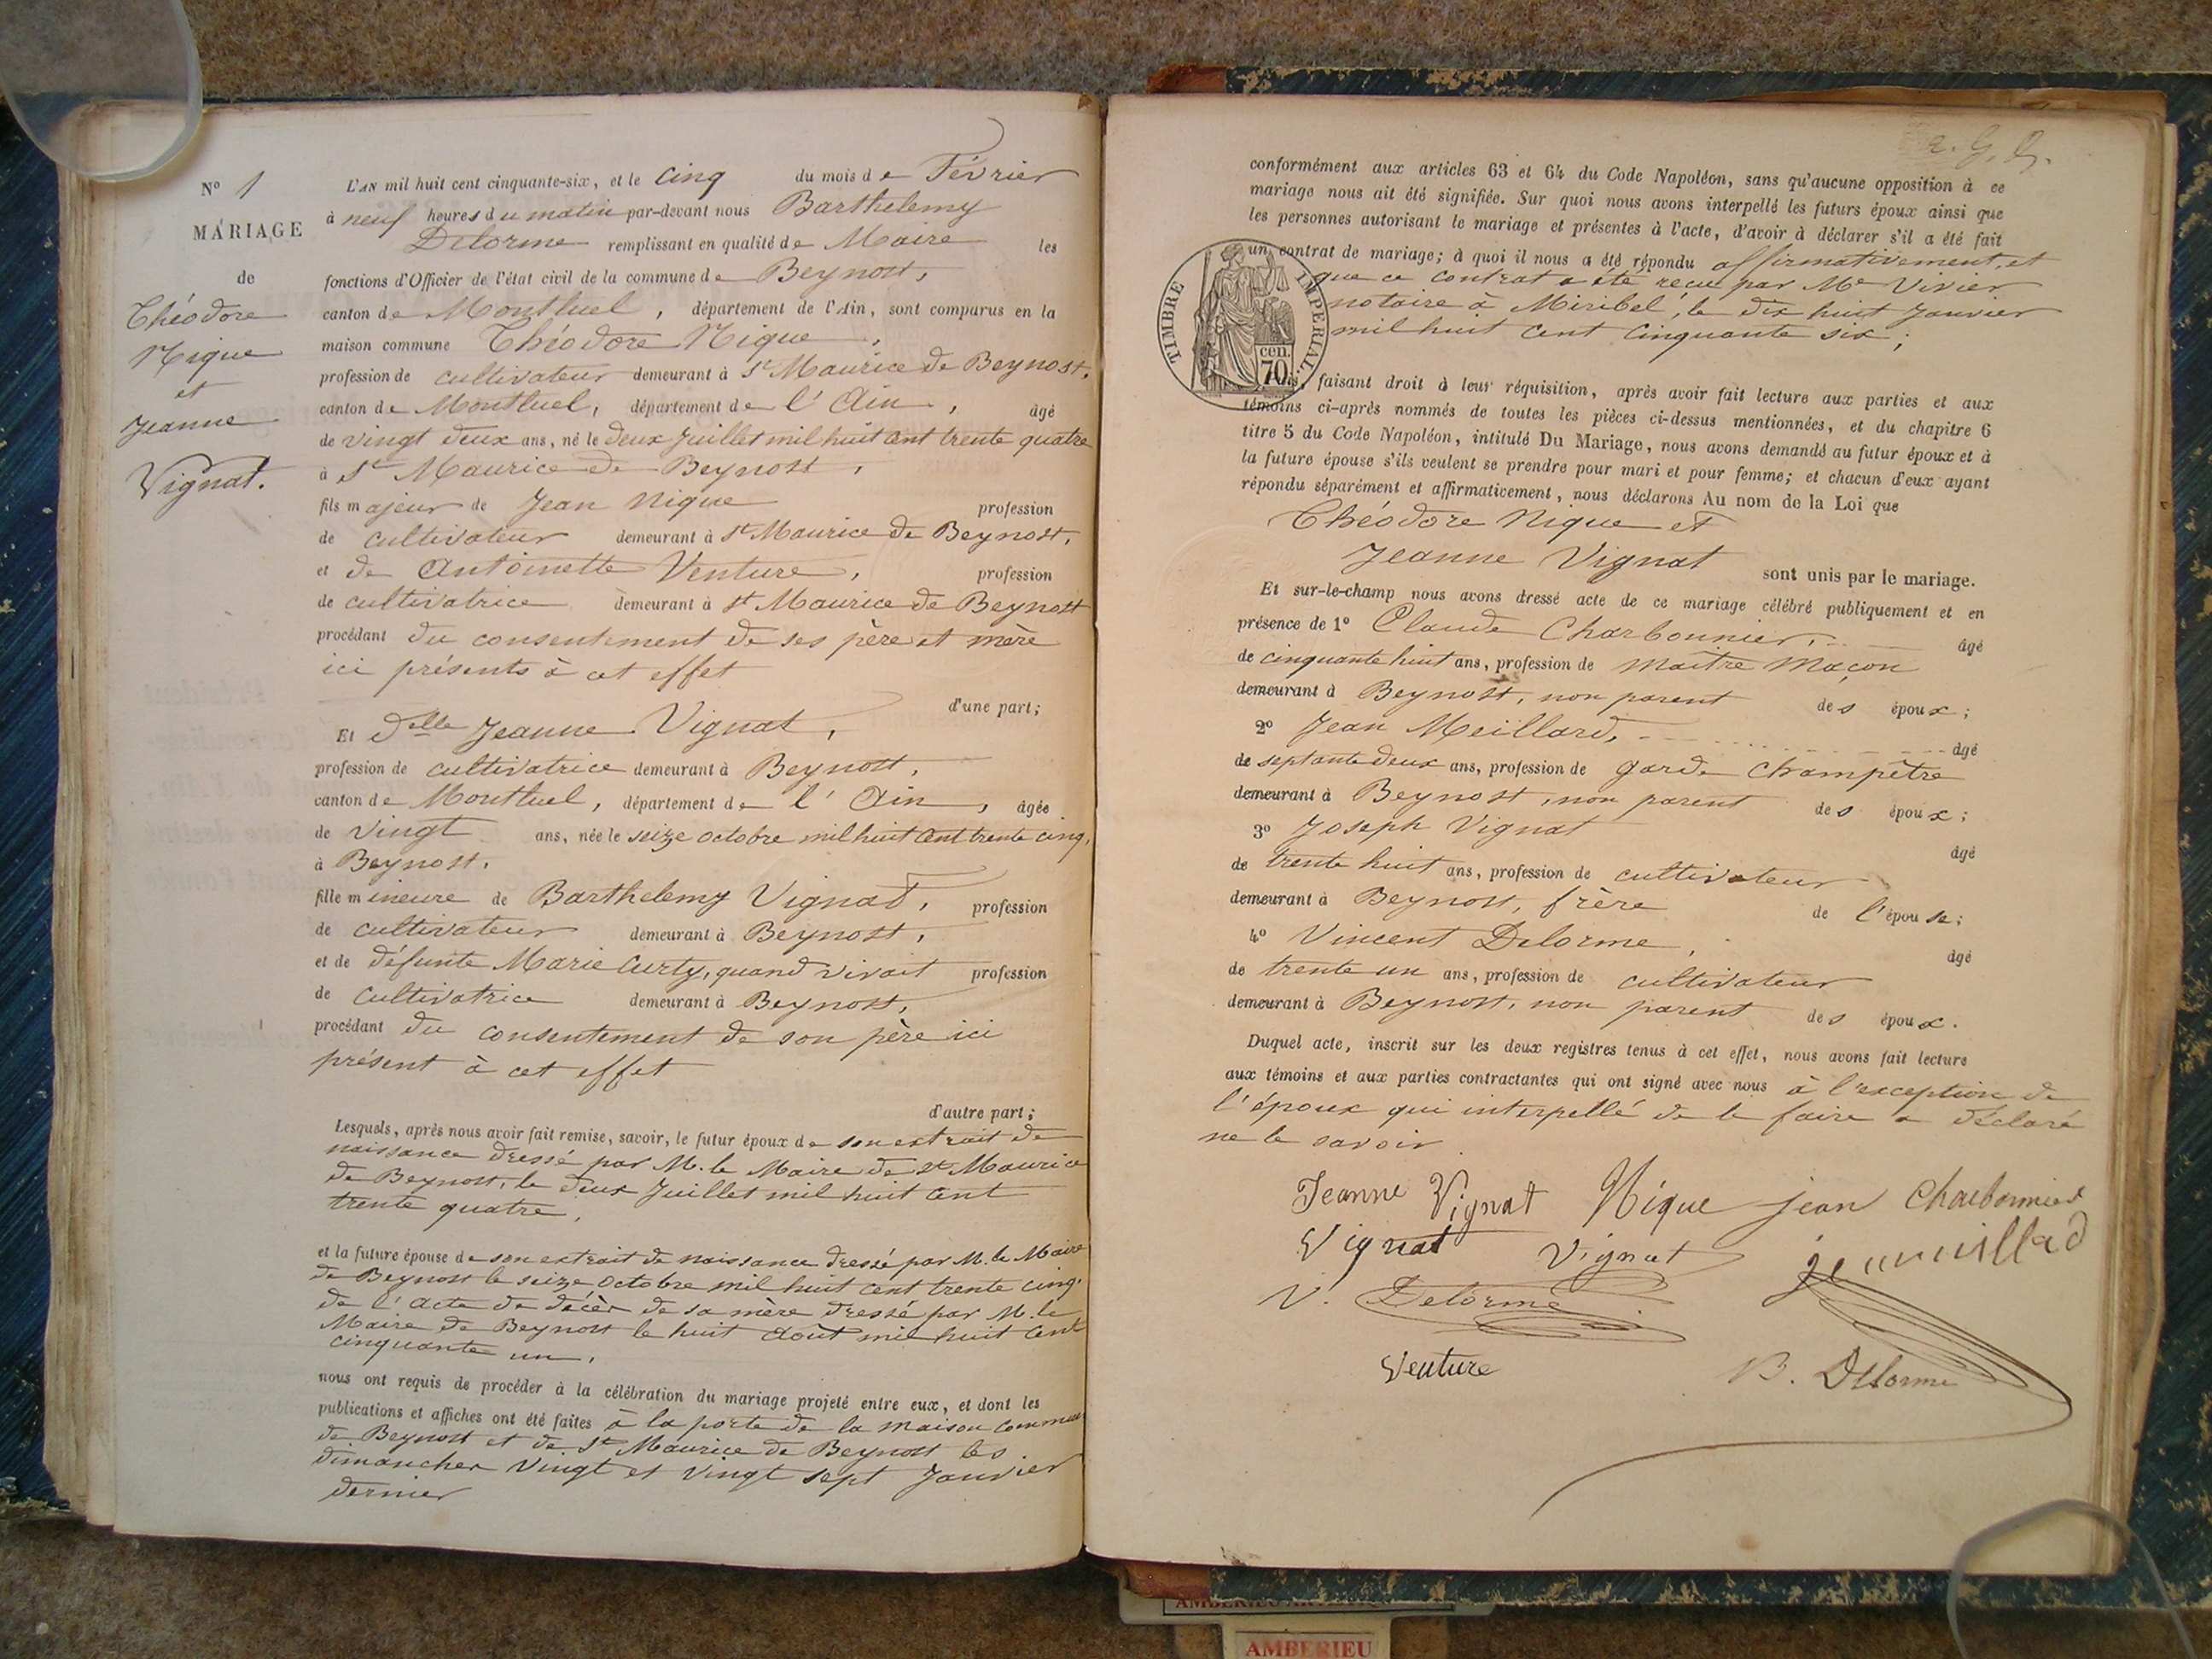 N° 1
MARIAGE
de
Théodore
Nique
et
Jeanne
Vignat.
L'AN mil huit cent cinquante-six, et le cinq du mois de Février
à neuf heures du matin par-devant nous Barthelemy
Delorme remplissant en qualité de Maire les
fonctions d'Officier de l'état civil de la commune de Beynost,
canton de Montluel, département de l'Ain, sont comparus en la
maison commune Théodore Nique,
profession de cultivateur demeurant à St Maurice de Beynost,
canton de Montluel, département de l'Ain, âgé
de vingt deux ans, né le deux Juillet mil huit cent trente quatre
à St Maurice de Beynost,
fils majeur de Jean Nique profession
de cultivateur demeurant à St Maurice de Beynost,
et de Antoinette Venture, profession
de cultivatrice demeurant à St Maurice de Beynost
procédant du consentement de ses père et mère
ici présents à cet effet
d'une part;
Et Delle Jeanne Vignat,
profession de cultivatrice demeurant à Beynost,
canton de Montluel, département de l'Ain, âgée
de vingt ans, née le seize octobre mil huit cent trente cinq,
à Beynost.
fille mineure de Barthelemy Vignat, profession
de cultivateur demeurant à Beynost,
et de défunte Marie Curty, quand vivait profession
de cultivatrice demeurant à Beynost,
procédant du consentement de son père ici
présent à cet effet
d'autre part;
Lesquels, après nous avoir fait remise, savoir, le futur époux de son extrait de
naissance dressé par M. le Maire de St Maurice
de Beynost, le deux Juillet mil huit cent
trente quatre,
et la future épouse de son extrait de naissance dressé par M. le Maire
de Beynost le seize octobre mil huit cent trente cinq,
de l'acte de décès de sa mère dressé par M. le
Maire de Beynost le huit Août mil huit cent
cinquante un,
nous ont requis de procéder à la célébration du mariage projeté entre eux, et dont les
publications et affiches ont été faites à la porte de la maison commune
de Beynost et de St Maurice de Beynost les
dimanches vingt et vingt sept Janvier
dernier
conformément aux articles 63 et 64 du Code Napoléon, sans qu'aucune opposition à ce
mariage nous ait été signifiée. Sur quoi nous avons interpellé les futurs époux ainsi que
les personnes autorisant le mariage et présentes à l'acte, d'avoir à déclarer s'il a été fait
un contrat de mariage; à quoi il nous a été répondu affirmativement, et
que ce contrat a été reçu par Me Vivier
notaire à Miribel, le dix huit Janvier
mil huit cent cinquante six;
TIMBRE IMPERIAL
cen.
70
faisant droit à leur réquisition, après avoir fait lecture aux parties et aux
témoins ci-après nommés de toutes les pièces ci-dessus mentionnées, et du chapitre 6
titre 5 du Code Napoléon, intitulé Du Mariage, nous avons demandé au futur époux et à
la future épouse s'ils veulent se prendre pour mari et pour femme; et chacun d'eux ayant
répondu séparément et affirmativement, nous déclarons Au nom de la Loi que
Théodore Nique et
Jeanne Vignat
sont unis par le mariage.
Et sur-le-champ nous avons dressé acte de ce mariage célébré publiquement et en
présence de 1° Claude Charbonnier, âgé
de cinquante huit ans, profession de maître maçon
demeurant à Beynost, non parent des époux;
2° Jean Meillard, âgé
de septante deux ans, profession de garde champêtre
demeurant à Beynost, non parent des époux;
3° Joseph Vignat âgé
de trente huit ans, profession de cultivateur
demeurant à Beynost, frère de l'épouse;
4° Vincent Delorme, âgé
de trente un ans, profession de cultivateur
demeurant à Beynost, non parent des époux.
Duquel acte, inscrit sur les deux registres tenus à cet effet, nous avons fait lecture
aux témoins et aux parties contractantes qui ont signé avec nous à l'exception de
l'époux qui interpellé de le faire a déclaré
ne le savoir
Jeanne Vignat Nique jean Charbonnier
Vignat Vignat
V. Delorme
Venture B. Delorme
AMBERIEU